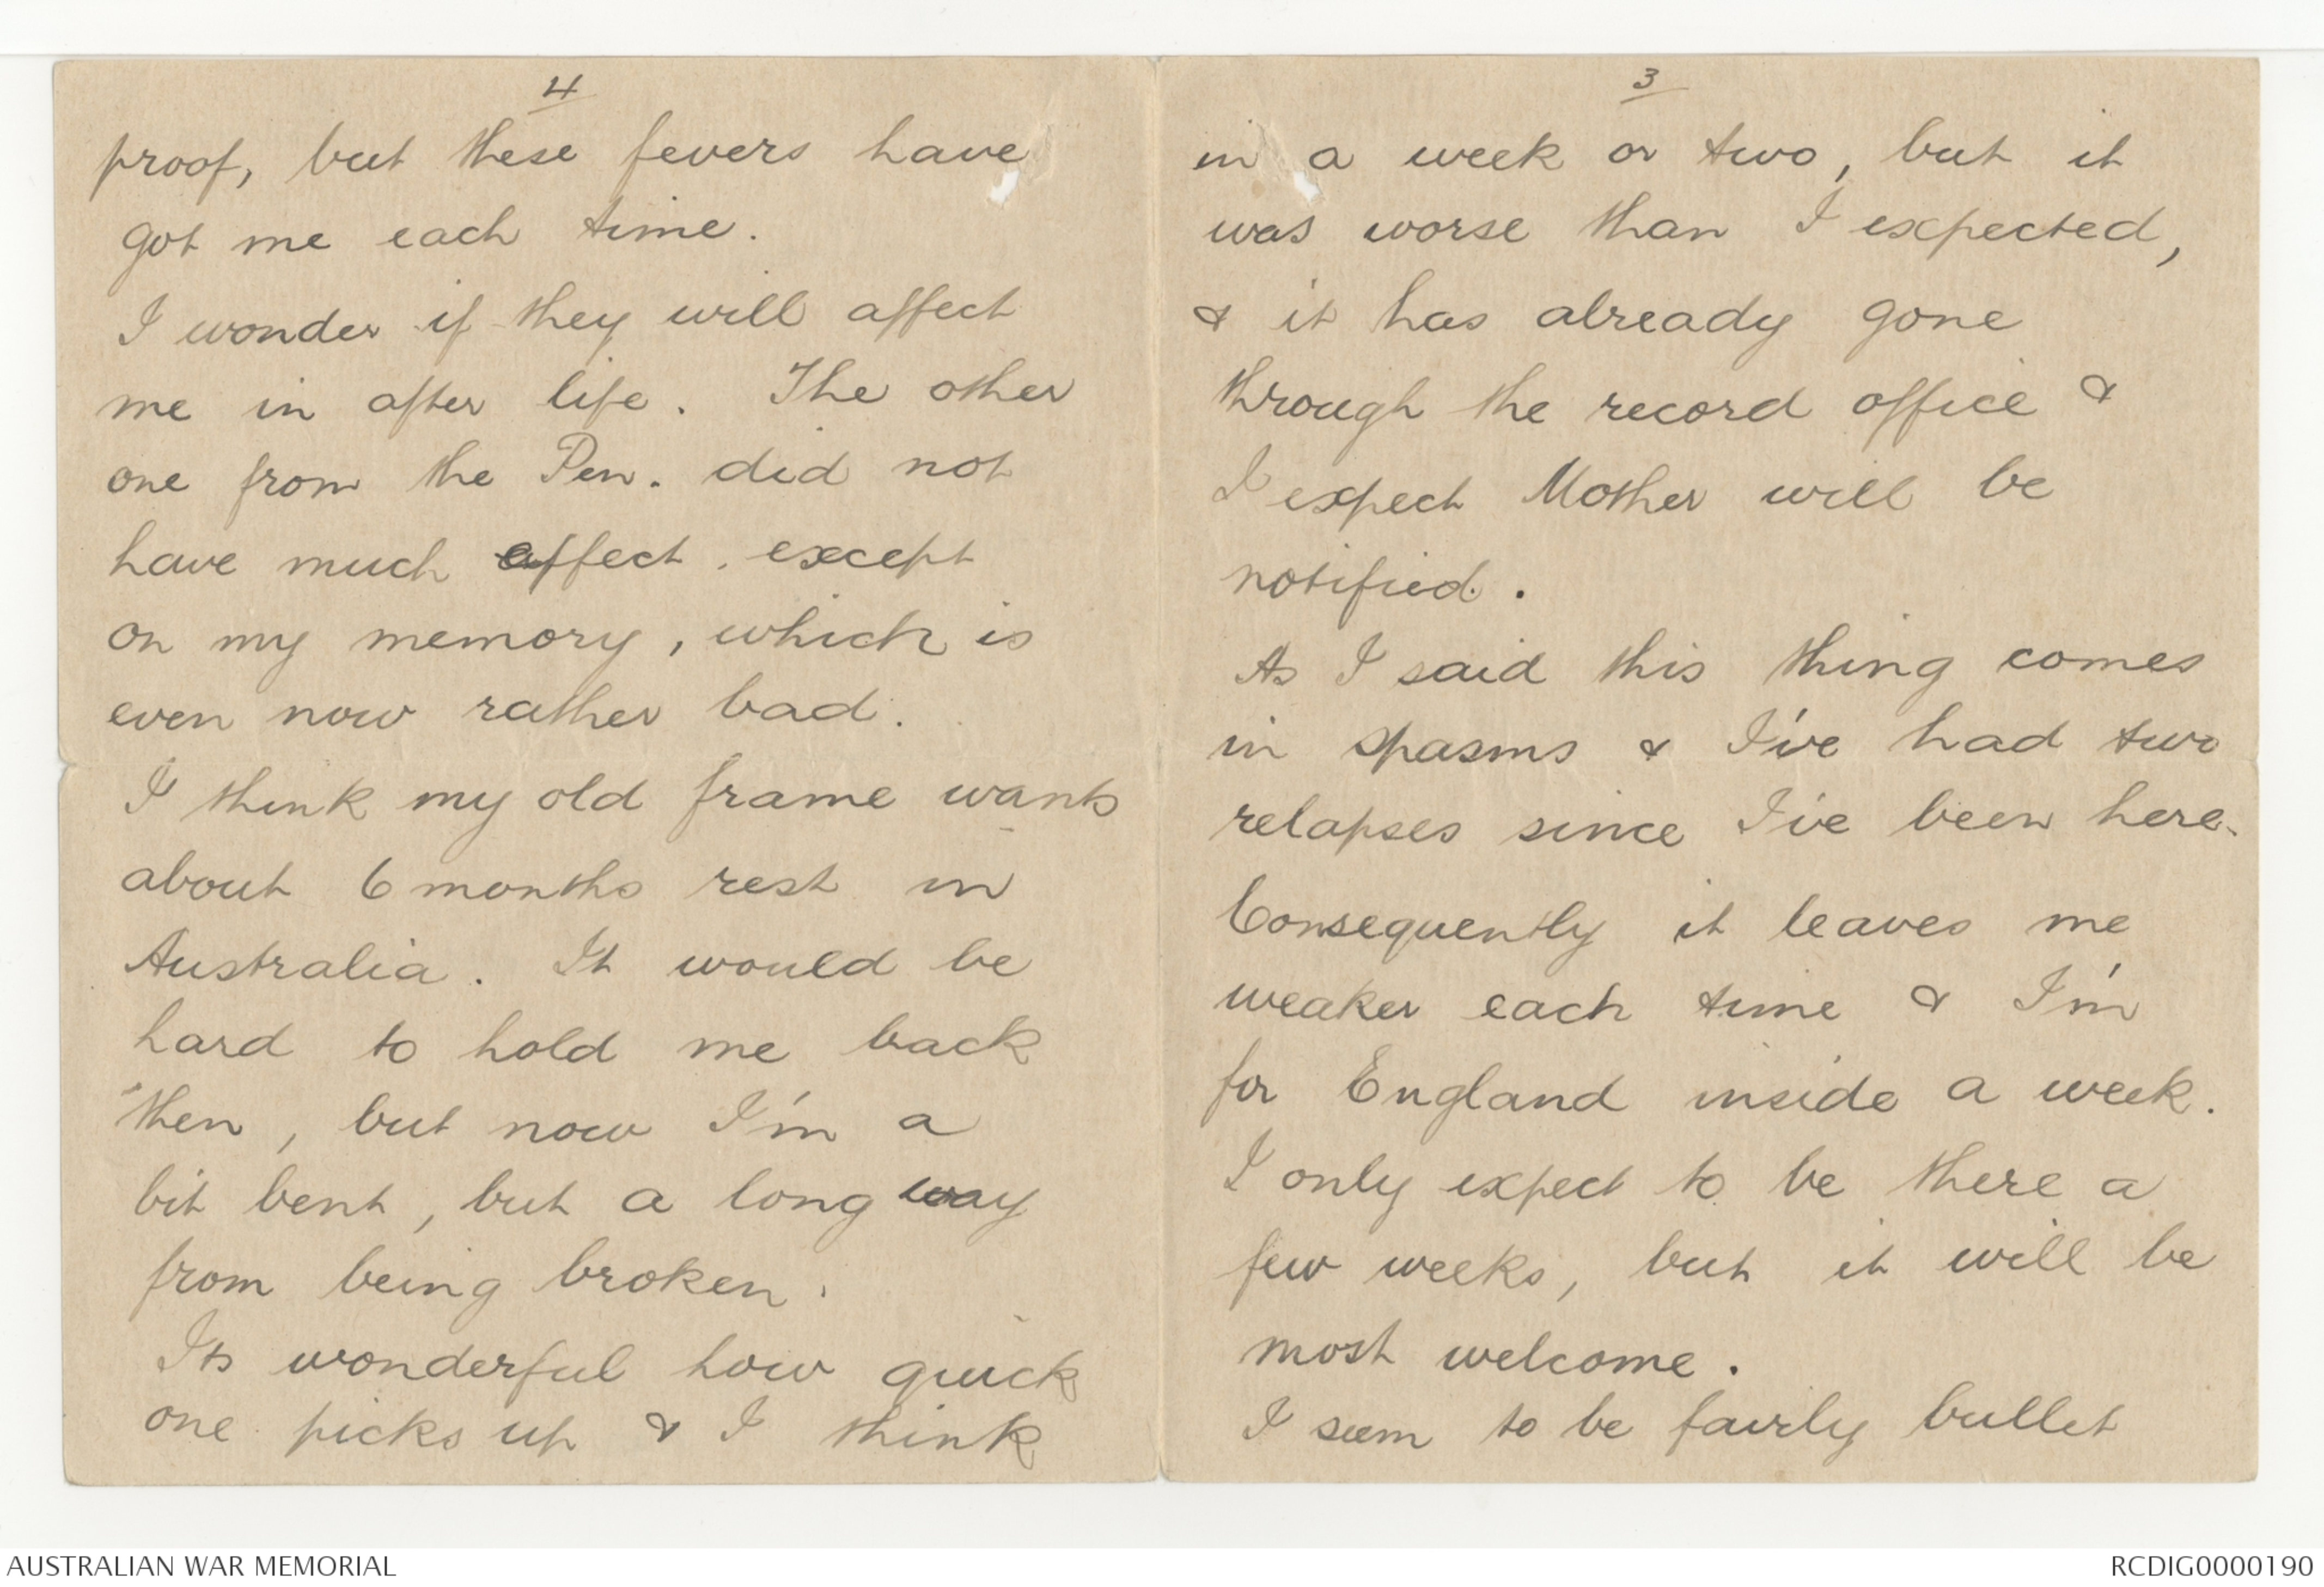 4
proof, but these fevers have
got me each time.
I wonder if they will affect
me in after life. The other
one from the Pen. did not
have much effect. except
on my memory, which is
even now rather bad.
I think my old frame wants
about 6 months rest in
Australia. It would be
hard to hold me back
then, but now I'm a
bit bent, but a long way
from being broken.
Its wonderful how quick
one picks up & I think
3
in a week or two, but it
was worse than I expected,
& it has already gone
through the record office &
I expect Mother will be
notified.
As I said this thing comes
in spasms & I've had two
relapses since I've been here.
Consequently it leaves me
weaker each time & I'm
for England inside a week.
I only expect to be there a
few weeks, but it will be
most welcome.
I seem to be fairly bullet
AUSTRALIAN WAR MEMORIAL
RCDIG0000190